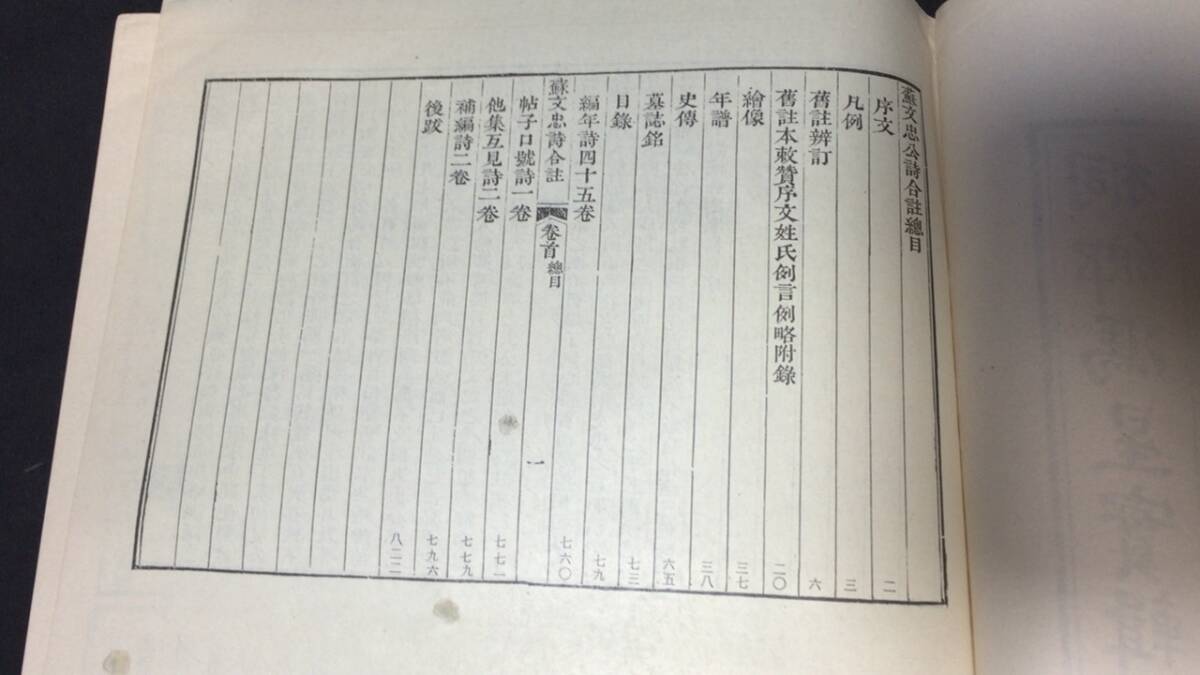 蘇文忠公詩合註總目
序文 二
凡例 三
舊註辨訂 六
舊註本敕贊序文姓氏例言例略附錄 二〇
繪像 三七
年譜 三八
史傳 六五
墓誌銘 七三
目錄 七九
編年詩四十五卷 七六〇
蘇文忠詩合註 卷首 總目 一
帖子口號詩一卷 七七一
他集互見詩二卷 七七九
補編詩二卷 七九六
後跋 八二二